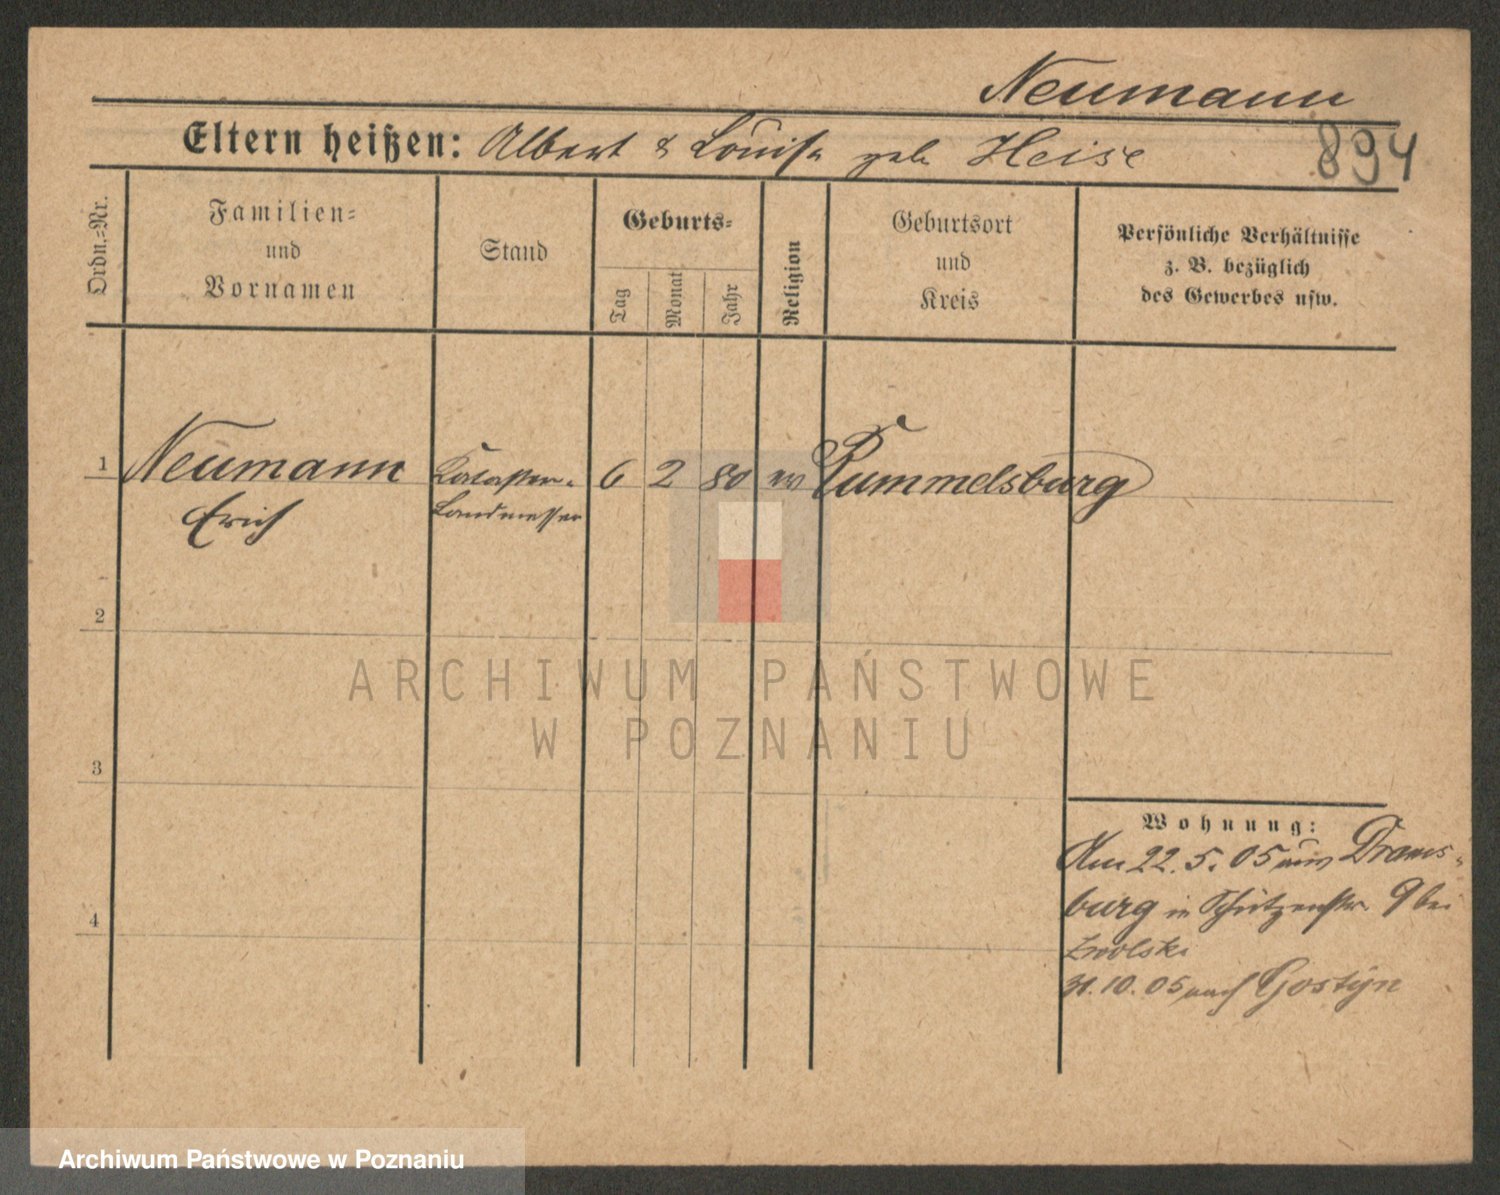 Neumann
Eltern heißen: Albert & Louise geb Heise
894
Ordn.-Nr.
Familien-
und
Vornamen
Stand
Geburts-
Tag
Monat
Jahr
Religion
Geburtsort
und
Kreis
Persönliche Verhältnisse
z. B. bezüglich
des Gewerbes usw.
1
Neumann
Erich
Kataster-
Landmesser
6
2
80
ev
Rummelsburg
2
3
4
Wohnung:
Am 22.5.05 aus Drams-
burg in Schützenstr. 9 bei
31.10.05 nach Gostyn
ARCHIWUM PAŃSTWOWE
W POZNANIU
Archiwum Państwowe w Poznaniu